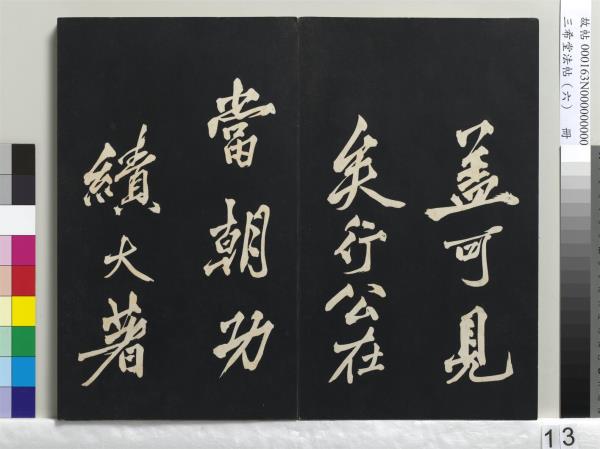 蓋可見
矣行公在
當朝功
績大著
故帖 000163N000000000
三希堂法帖（六） 冊
13